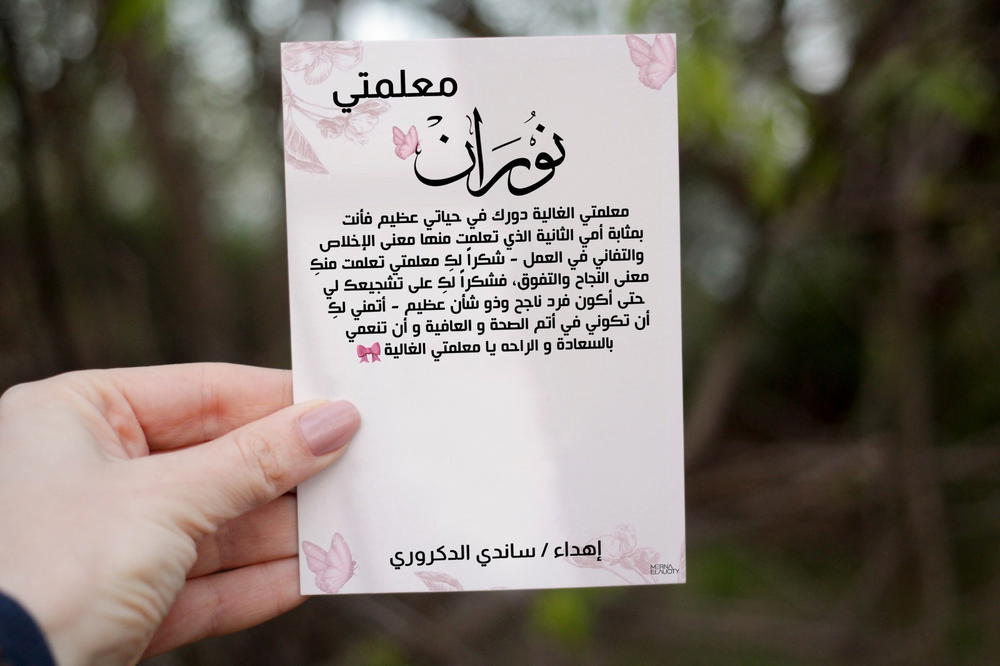 معلمتي
نُورَانْ
معلمتي الغالية دورك في حياتي عظيم فأنت
بمثابة أمي الثانية الذي تعلمت منها معنى الإخلاص
والتفاني في العمل - شكراً لكِ معلمتي تعلمت منكِ
معنى النجاح والتفوق، فشكراً لكِ على تشجيعك لي
حتى أكون فرد ناجح وذو شأن عظيم - أتمني لكِ
أن تكوني في أتم الصحة و العافية و أن تنعمي
بالسعادة و الراحه يا معلمتي الغالية
إهداء / ساندي الدكروري
MERNA